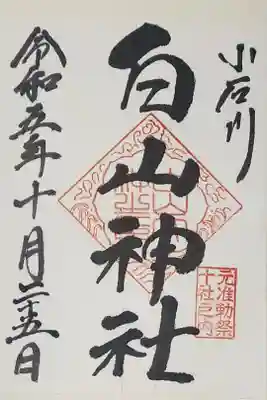 小石川
白山神社
元准勅祭
十社之内
令和五年十月二十五日